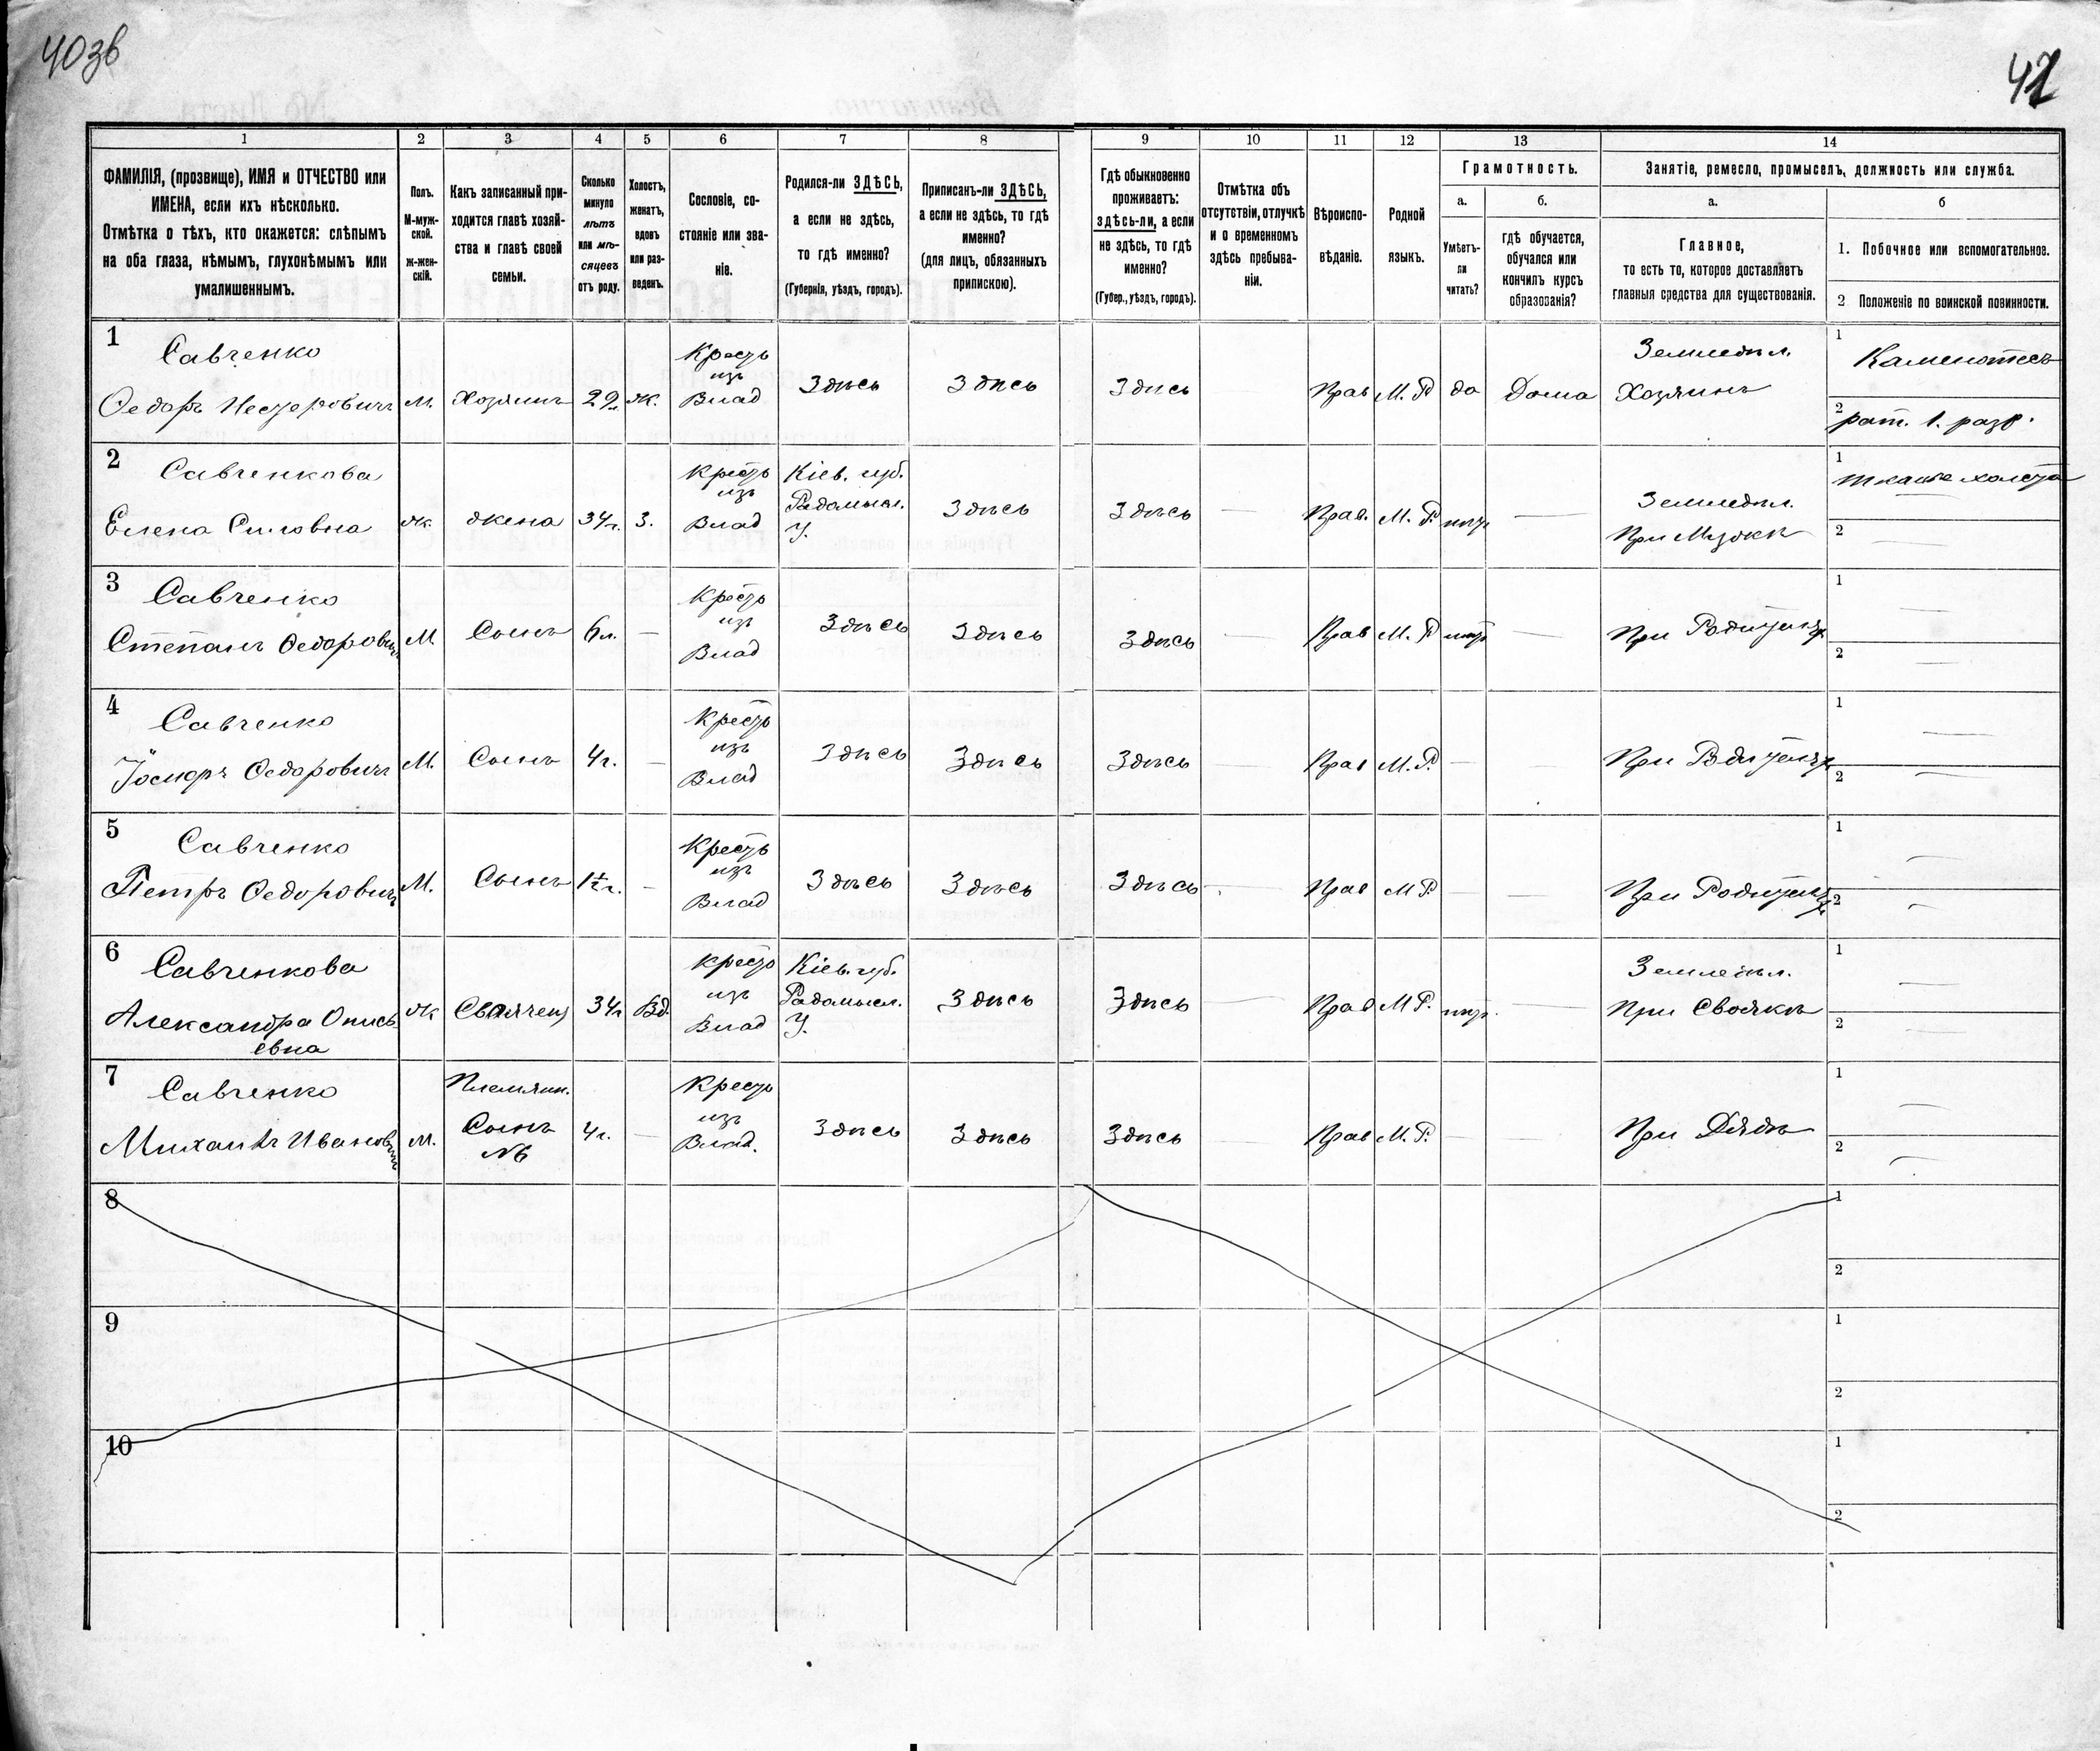 403б
42
1
2
3
4
5
6
7
8
9
10
11
12
13
14
ФАМИЛІЯ, (прозвище), ИМЯ и ОТЧЕСТВО или
ИМЕНА, если ихъ нѣсколько.
Отмѣтка о тѣхъ, кто окажется: слѣпымъ
на оба глаза, нѣмымъ, глухонѣмымъ или
умалишеннымъ.
Полъ.
М-муж-
ской.
ж-жен-
скій.
Какъ записанный при-
ходится главѣ хозяй-
ства и главѣ своей
семьи.
Сколько
минуло
лѣтъ
или мѣ-
сяцевъ
отъ роду.
Холостъ,
женатъ,
вдовъ
или раз-
веденъ.
Сословіе, со-
стояніе или зва-
ніе.
Родился-ли ЗДѢСЬ,
а если не здѣсь,
то гдѣ именно?
(Губернія, уѣздъ, городъ).
Приписанъ-ли ЗДѢСЬ,
а если не здѣсь, то гдѣ
именно?
(для лицъ, обязанныхъ
припискою).
Гдѣ обыкновенно
проживаетъ:
здѣсь-ли, а если
не здѣсь, то гдѣ
именно?
(Губер., уѣздъ, городъ).
Отмѣтка объ
отсутствіи, отлучкѣ
и о временномъ
здѣсь пребыва-
ніи.
Вѣроиспо-
вѣданіе.
Родной
языкъ.
Грамотность.
а.
Умѣетъ-
ли
читать?
б.
гдѣ обучается,
обучался или
кончилъ курсъ
образованія?
Занятіе, ремесло, промыселъ, должность или служба.
а.
Главное,
то есть то, которое доставляетъ
главныя средства для существованія.
б
1. Побочное или вспомогательное.
2 Положеніе по воинской повинности.
1
Савченко
Ѳедоръ Нестеровичъ
М.
Хозяинъ
29 л.
ж.
Крестъ
изъ
Влад
Здѣсь
Здѣсь
Здѣсь
Прав
М. Р
да
Дома
Земледѣл.
Хозяинъ
1
Каменотесъ
2
рат. 1. разр.
2
Савченкова
Елена Силовна
ж.
жена
34 г.
З.
Крестъ
изъ
Влад
Кіев. губ.
Радомысл.
У.
Здѣсь
Здѣсь
Прав.
М. Р.
нѣт
Земледѣл.
При Мужѣ
1
тканье холста
2
3
Савченко
Степанъ Ѳедорович
М
Сынъ
6 л.
Крестъ
изъ
Влад
Здѣсь
Здѣсь
Здѣсь
Прав
М. Р
нѣт
При Родителях
1
2
4
Савченко
Іосифъ Ѳедоровичъ
М.
Сынъ
4 г.
Крестъ
изъ
Влад
Здѣсь
Здѣсь
Здѣсь
Прав
М. Р.
При Родителях
1
2
5
Савченко
Петръ Ѳедорович
М.
Сынъ
1½ г.
Крестъ
изъ
Влад
Здѣсь
Здѣсь
Здѣсь
Прав
М Р.
При Родителях
1
2
6
Савченкова
Александра Онись
евна
ж
34 г
Вд.
крест
изъ
Влад
Кіев. губ.
Радомысл.
У.
Здѣсь
Здѣсь
Прав
М Р.
нѣт.
Земледѣл.
При Своякѣ
1
2
7
Савченко
Михаилъ Иванович
М.
Племян.
Сынъ
№6
4 г.
Крест
изъ
Влад.
Здѣсь
Здѣсь
Здѣсь
Прав
М. Р.
При Дядѣ
1
2
8
1
2
9
1
2
10
1
2